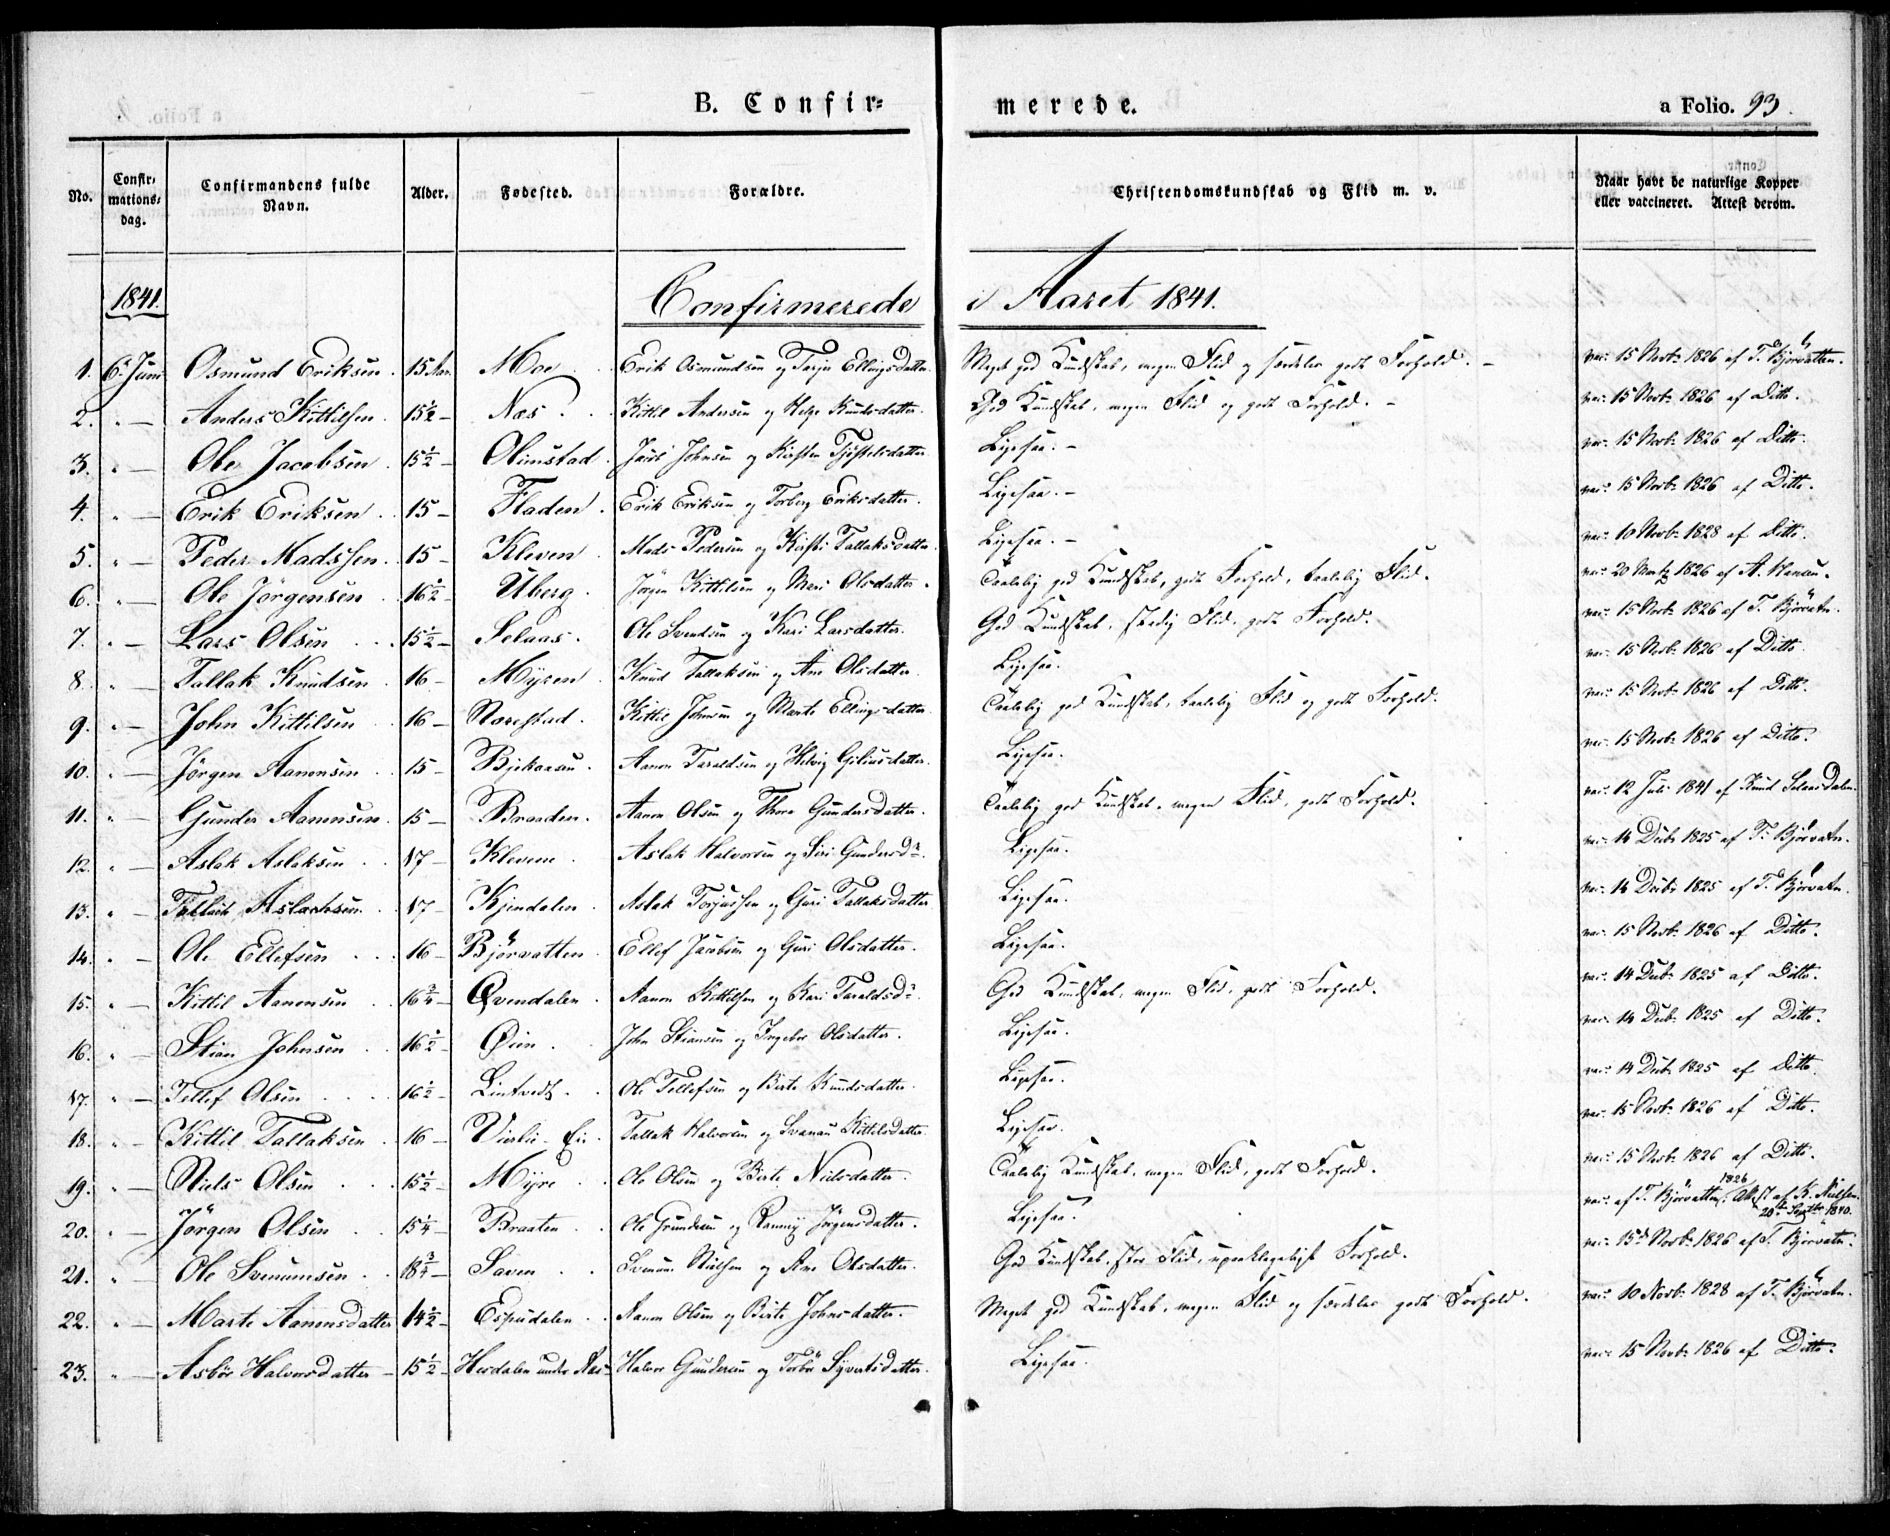 B. Confir=
merede.
a Folio. 93.
No. Confir-mations-dag. Confirmandens fulde Navn. Alder. Fødested. Forældre. Christendomskundskab og Flid m. v. Naar havt de naturlige Kopper eller vaccineret. Attest derom.
1841. Confirmerede i Aaret 1841.
1. 6. Juni Osmund Eriksen 15 Aar. Moe Erik Osmundsen og Tarjer Ellingsdatter Meget god Kundskab, megen Flid og særdeles godt Forhold. vac: 15 Novb: 1826 af T. Bjørvatten.
2. " — Anders Kittilsen 15½ — Næs Kittil Andersen og Helge Knudsdatter God Kundskab, megen Flid og godt Forhold. vac: 15 Novb: 1826 af Ditto.
3. " — Ole Jacobsen 15½ — Olimstad Jacob Johnsen og Kirsten Ligesaa. vac: 15 Novb: 1826 af Ditto.
4. " — Erik Eriksen 15 — Fladen Erik Eriksen og Torberg Eriksdatter. Ligesaa. vac: 15 Novb: 1826 af Ditto.
5. " — Peder Madssen 15 — Kleven Mads Pedersen og Kirsti Tallaksdatter. Ligesaa. vac: 10 Novb: 1828 af Ditto.
6. " — Ole Jørgensen 16½ — Uberg Jørgen Kittilsen og Mari Olsdatter. Taalelig god Kundskab, godt Forhold, taalelig Flid. vac: 20 Martz 1826 af A. Hansen.
7. " — Lars Olsen 15½ — Selaas Ole Svendsen og Kari Larsdatter. God Kundskab, stadig Flid, godt Forhold. vac: 15 Novb: 1826 af T. Bjørvatn.
8. " — Tallak Knudsen 16 — Myren Knud Tallaksen og Ane Olsdatter Ligesaa. vac: 15 Novb: 1826 af Ditto.
9. " — John Kittilsen 16 — Narestad Kittil Johnsen og Marte Ellingsdatter Taalelig god Kundskab, taalelig Flid og godt Forhold. vac: 15 Novb: 1826 af Ditto.
10. " — Jørgen Aanonsen 15 — Aanon Taraldsen og Helvig Ligesaa. vac: 15 Novb: 1826 af Ditto.
11. " — Gunder Aanonsen 15 — Braaden Aanon Olsen og Thora Gundersdatter. Taalelig god Kundskab, megen Flid, godt Forhold. vac: 12 Juli 1841 af Knud Selaasdalen.
12. " — Aslak Aslaksen 17 — Klevene Aslak Halvorsen og Siri Gundersdr. Ligesaa. vac: 14 Decb: 1825 af T. Bjørvatn.
13. " — Tallach Aslachsen 17 — Kjendalen Aslak Torjussen og Guri Tallaksdatter Ligesaa. vac: 14 Decb: 1825 af T. Bjørvatn.
14. " — Ole Ellefsen 16 — Bjørvatten Ellef Jacobsen og Guri Olsdatter. Ligesaa. vac: 15 Novb: 1826 af Ditto.
15. " — Kittil Aanonsen 16¾ — Qvendalen Aanon Kittilsen og Kari Taraldsdr. God Kundskab, megen Flid, godt Forhold. vac: 14 Decb: 1825 af Ditto.
16. " — Stian Johnsen 16½ — Øien John Stiansen og Ingebor Olsdatter. Ligesaa. vac: 14 Decb: 1825 af Ditto.
17. " — Tellef Olsen 16½ — Lintvedt Ole Tellefsen og Birte Knudsdatter. Ligesaa. vac: 14 Decb: 1825 af Ditto.
18. " — Kittil Tallaksen 16 — Vierlie Ei. Tallak Halvorsen og Svanau Kittilsdatter. Ligesaa. vac: 15 Novb: 1826 af Ditto.
19. " — Niels Olsen 15½ — Myre Ole Olsen og Birte Nielsdatter. Taalelig Kundskab, megen Flid, godt Forhold. vac: 15 Novb: 1826 af Ditto.
20. " — Jørgen Olsen 15¼ — Braaten Ole Gundersen og Rannei Jørgensdatter. Ligesaa. vac: af T. Bjørvatten 1826 Attest af K. Nielsen 20de Septbr 1840.
21. " — Ole Svenumsen 18¾ — Saven Svenum Nielsen og Ane Olsdatter. God Kundskab, stor Flid, upaaklageligt Forhold. vac: 15de Novb: 1826 af T. Bjørvatn.
22. " — Marte Aanonsdatter 14½ — Espedalen Aanon Olsen og Birte Johnsdatter. Meget god Kundskab, megen Flid og særdeles godt Forhold. vac: 10 Novb: 1828 af T. Bjørvatn.
23. " — Asbør Halvorsdatter — 15½ — Hesdalen under Næs — Halvor Gundersen og Torbør Syvertsdatter. Ligesaa. vac: 15 Novb: 1826 af Ditto.